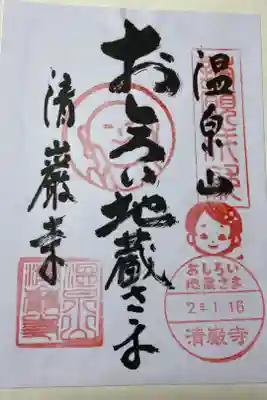 温泉山
おしろい地蔵さま
清巖寺
おしろい
地蔵さま
2 1 16
清巌寺